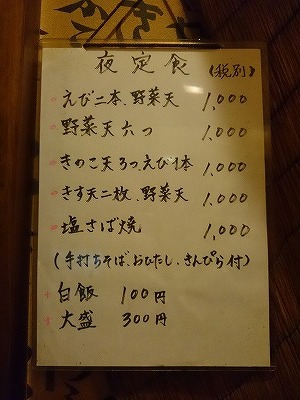 夜定食 (税別)
えび二本、野菜天 1,000
野菜天六つ 1,000
きのこ天3つ、えび1本 1,000
きす天二枚、野菜天 1,000
塩さば焼 1,000
(手打ちそば、おひたし、きんぴら付)
白飯 100円
大盛 300円